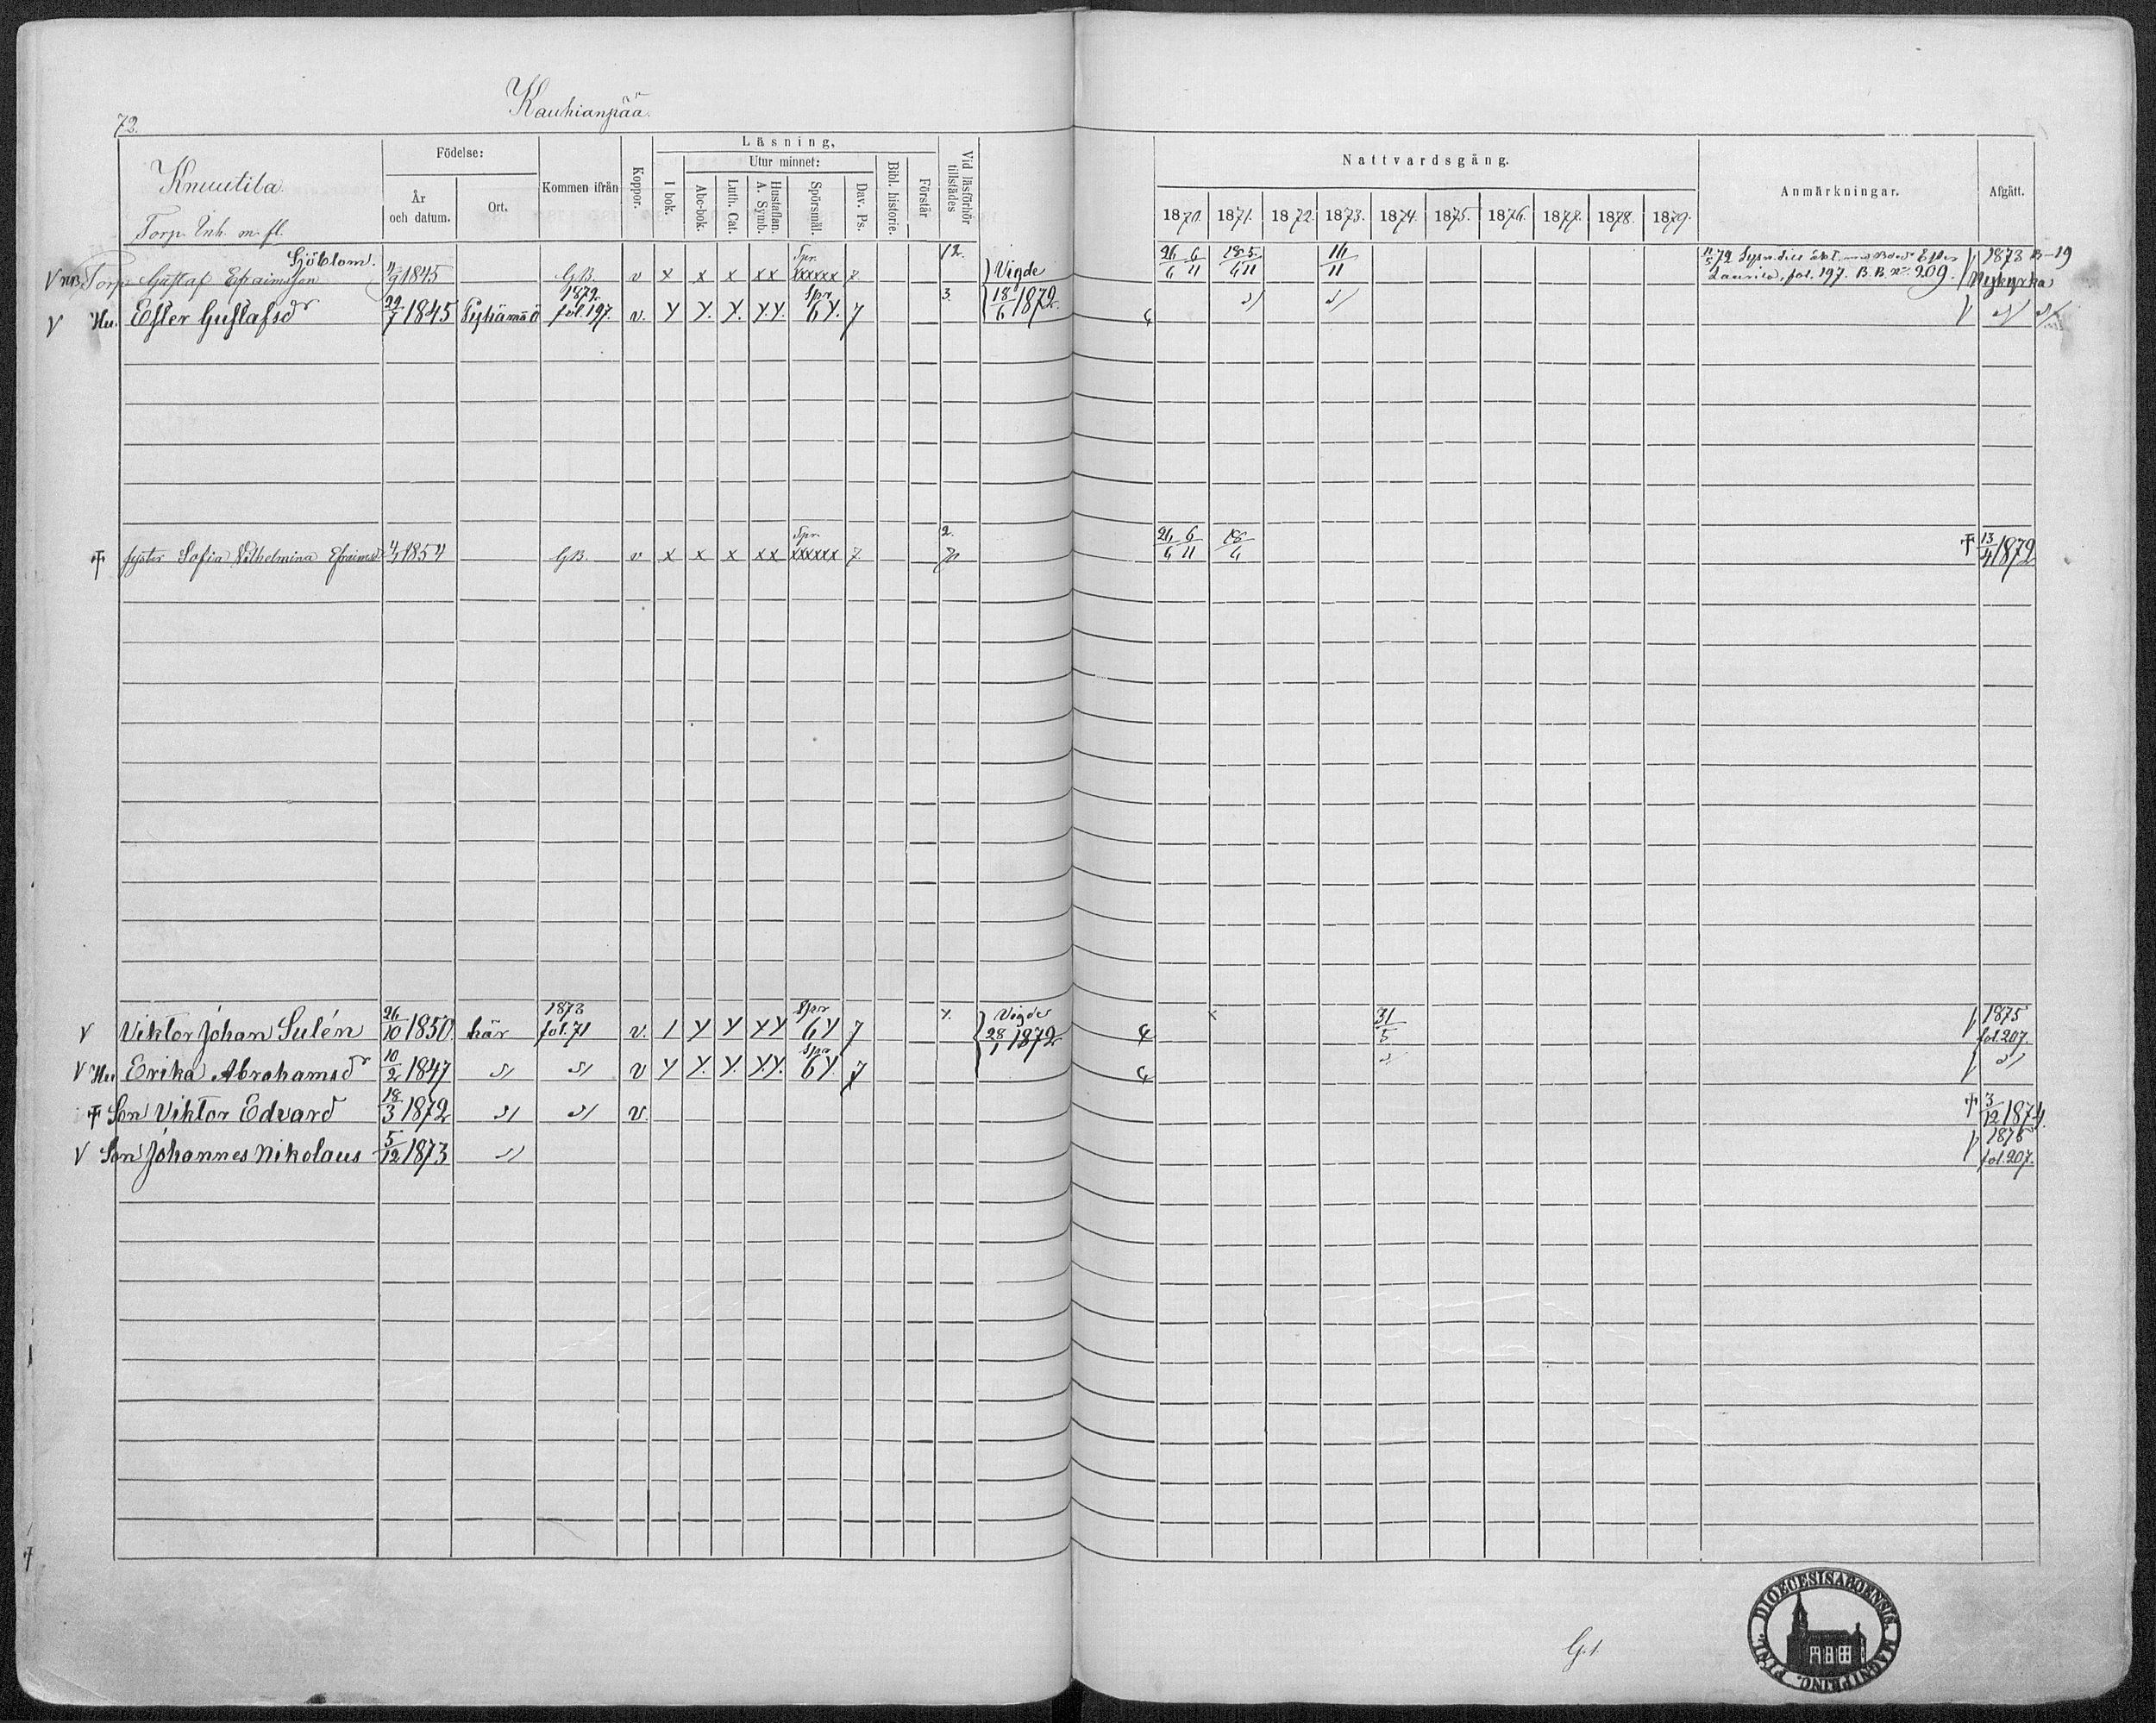 72.
Kauhianpää.
Knuutila.
Torp. Inh. m. fl.
Födelse:
År och datum.
Ort.
Kommen ifrån
Koppor.
Läsning.
I bok.
Utur minnet:
Abc-bok.
Luth. Cat.
Hustaflan. A. Symb.
Spörsmål.
Dav. Ps.
Bibl. historie.
Förstår
Vid läsförhör tillstädes
Nattvardsgång.
1870. 1871. 1872. 1873. 1874. 1875. 1876. 1877. 1878. 1879.
Anmärkningar.
Afgått.
Sjöblom.
Torp. Gustaf Efraimsson 11/9 1845 G.B. v x x x xx Spr. xxxxxx 7 12. Vigde 18/6 1872. 26/6 6/11 18/6 5/11 16/11 fol. 197. B. B. No 209. 1873 B-19 Nykyrka
V Hu. Ester Gustafsd:r 22/7 1845 Pyhämaa 1872 fol. 197. v. Y Y. Y. Y.Y. Spr 6 Y. 7 3. 4
† Syster Sofia Vilhelmina Efraimsd 4/1 1854 G.B. v x x x xx Spr. xxxxxx 7 2. 26/6 6/11 18/6 † 13/4 1872
V Viktor Johan Sulén 26/10 1850. här 1873 fol. 71 v. 1 Y Y YY Spr 6Y 7 Vigde 28/1 1872 4 31/5 1875 fol. 207.
V Hu Erika Abrahamsd:r 10/2 1847 v Y Y. Y. Y.Y. Spr 6Y 7 4
† Son Viktor Edvard 18/3 1872 v. † 3/12 1874.
V Son Johannes Nikolaus 5/12 1873 1875 fol. 207.
G.1
FINL. DIOECESIS ABOENSIS MAGNI PRINC.